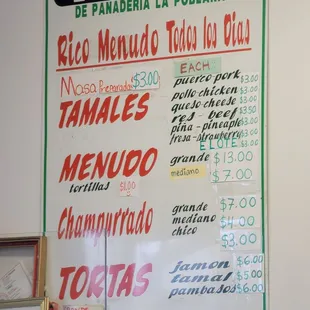 DE PANADERIA LA POBLANA
Rico Menudo Todos los Dias
EACH
Masa Preparada $3.00
TAMALES
puerco pork $3.00
pollo-chicken $3.00
queso cheese $3.00
res - beef $3.00
piña - pineapple $3.00
fresa-strawberry $3.00
ELOTE $3.00
MENUDO
tortillas $1.00
grande $13.00
mediano $7.00
Champurrado
grande $7.00
mediano $4.00
chico $3.00
TORTAS
jamon $6.00
tamal $5.00
pambasos $6.00